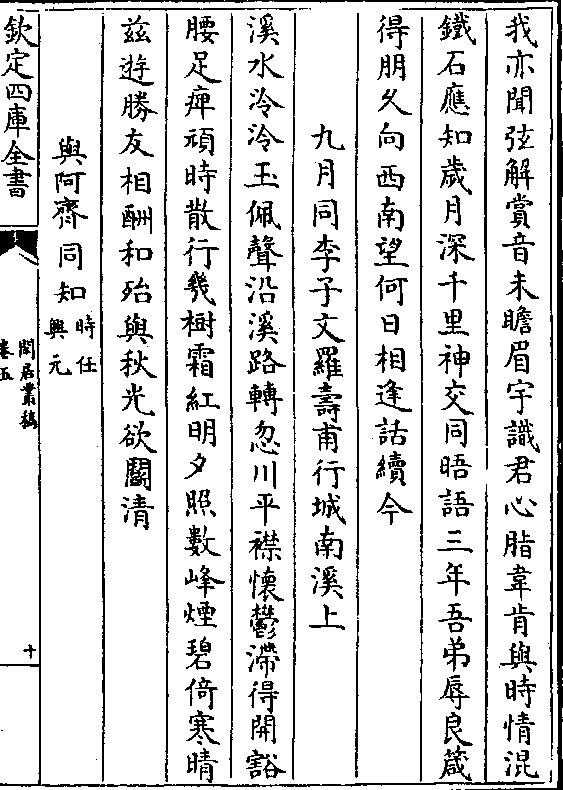 我亦聞弦解賞音未瞻眉宇識君心脂韋肯與時情混
鐵石應知歲月深千里神交同晤語三年吾弟辱良箴
得朋久向西南望何日相逢話續今
九月同李子文羅壽甫行城南溪上
溪水泠泠玉佩聲沿溪路轉忽川平襟懷鬱滯得開豁
腰足痺頑時散行幾樹霜紅明夕照數峰煙碧倚寒晴
兹遊勝友相酬和殆與秋光欲鬬清
與阿齊同知時任興元
欽定四庫全書
閒居叢稿
卷五
十